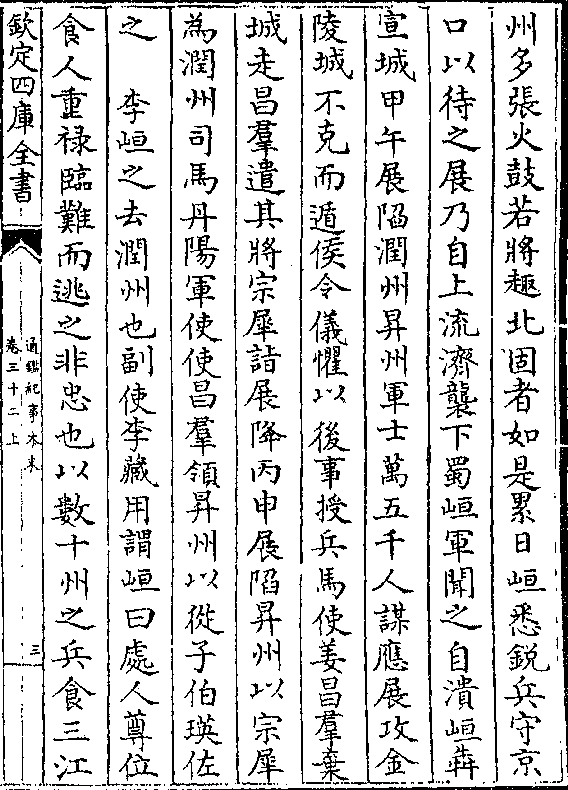 州多張火鼓若將趣北固者如是累日峘悉鋭兵守京
口以待之展乃自上流濟襲下蜀峘軍聞之自潰峘犇
宣城甲午展䧟潤州昇州軍士萬五千人謀應展攻金
陵城不克而遁侯令儀懼以後事授兵馬使姜昌羣棄
城走昌羣遣其將宗犀詣展降丙申展䧟昇州以宗犀
為潤州司馬丹陽軍使使昌羣領昇州以從子伯瑛佐
之　李峘之去潤州也副使李藏用謂峘曰處人尊位
食人重禄臨難而逃之非忠也以數十州之兵食三江
欽定四庫全書
通鑑紀事本末
卷三十二上
三